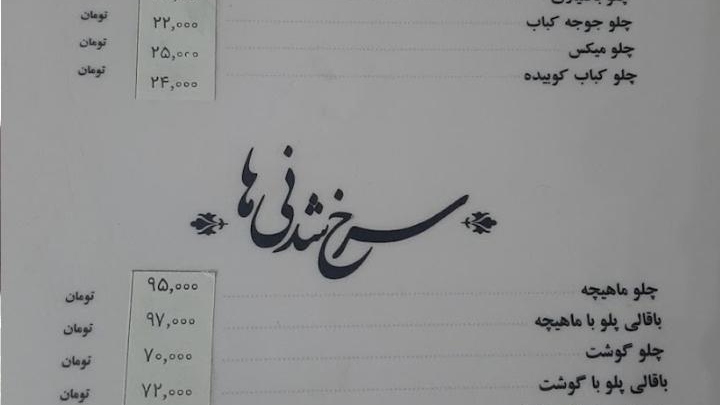 چلو جوجه کباب ۲۲,۰۰۰ تومان
چلو میکس ۲۵,۰۰۰ تومان
چلو کباب کوبیده ۲۴,۰۰۰ تومان
سرخ شدنی ها
چلو ماهیچه ۹۵,۰۰۰ تومان
باقالی پلو با ماهیچه ۹۷,۰۰۰ تومان
چلو گوشت ۷۰,۰۰۰ تومان
باقالی پلو با گوشت ۷۲,۰۰۰ تومان